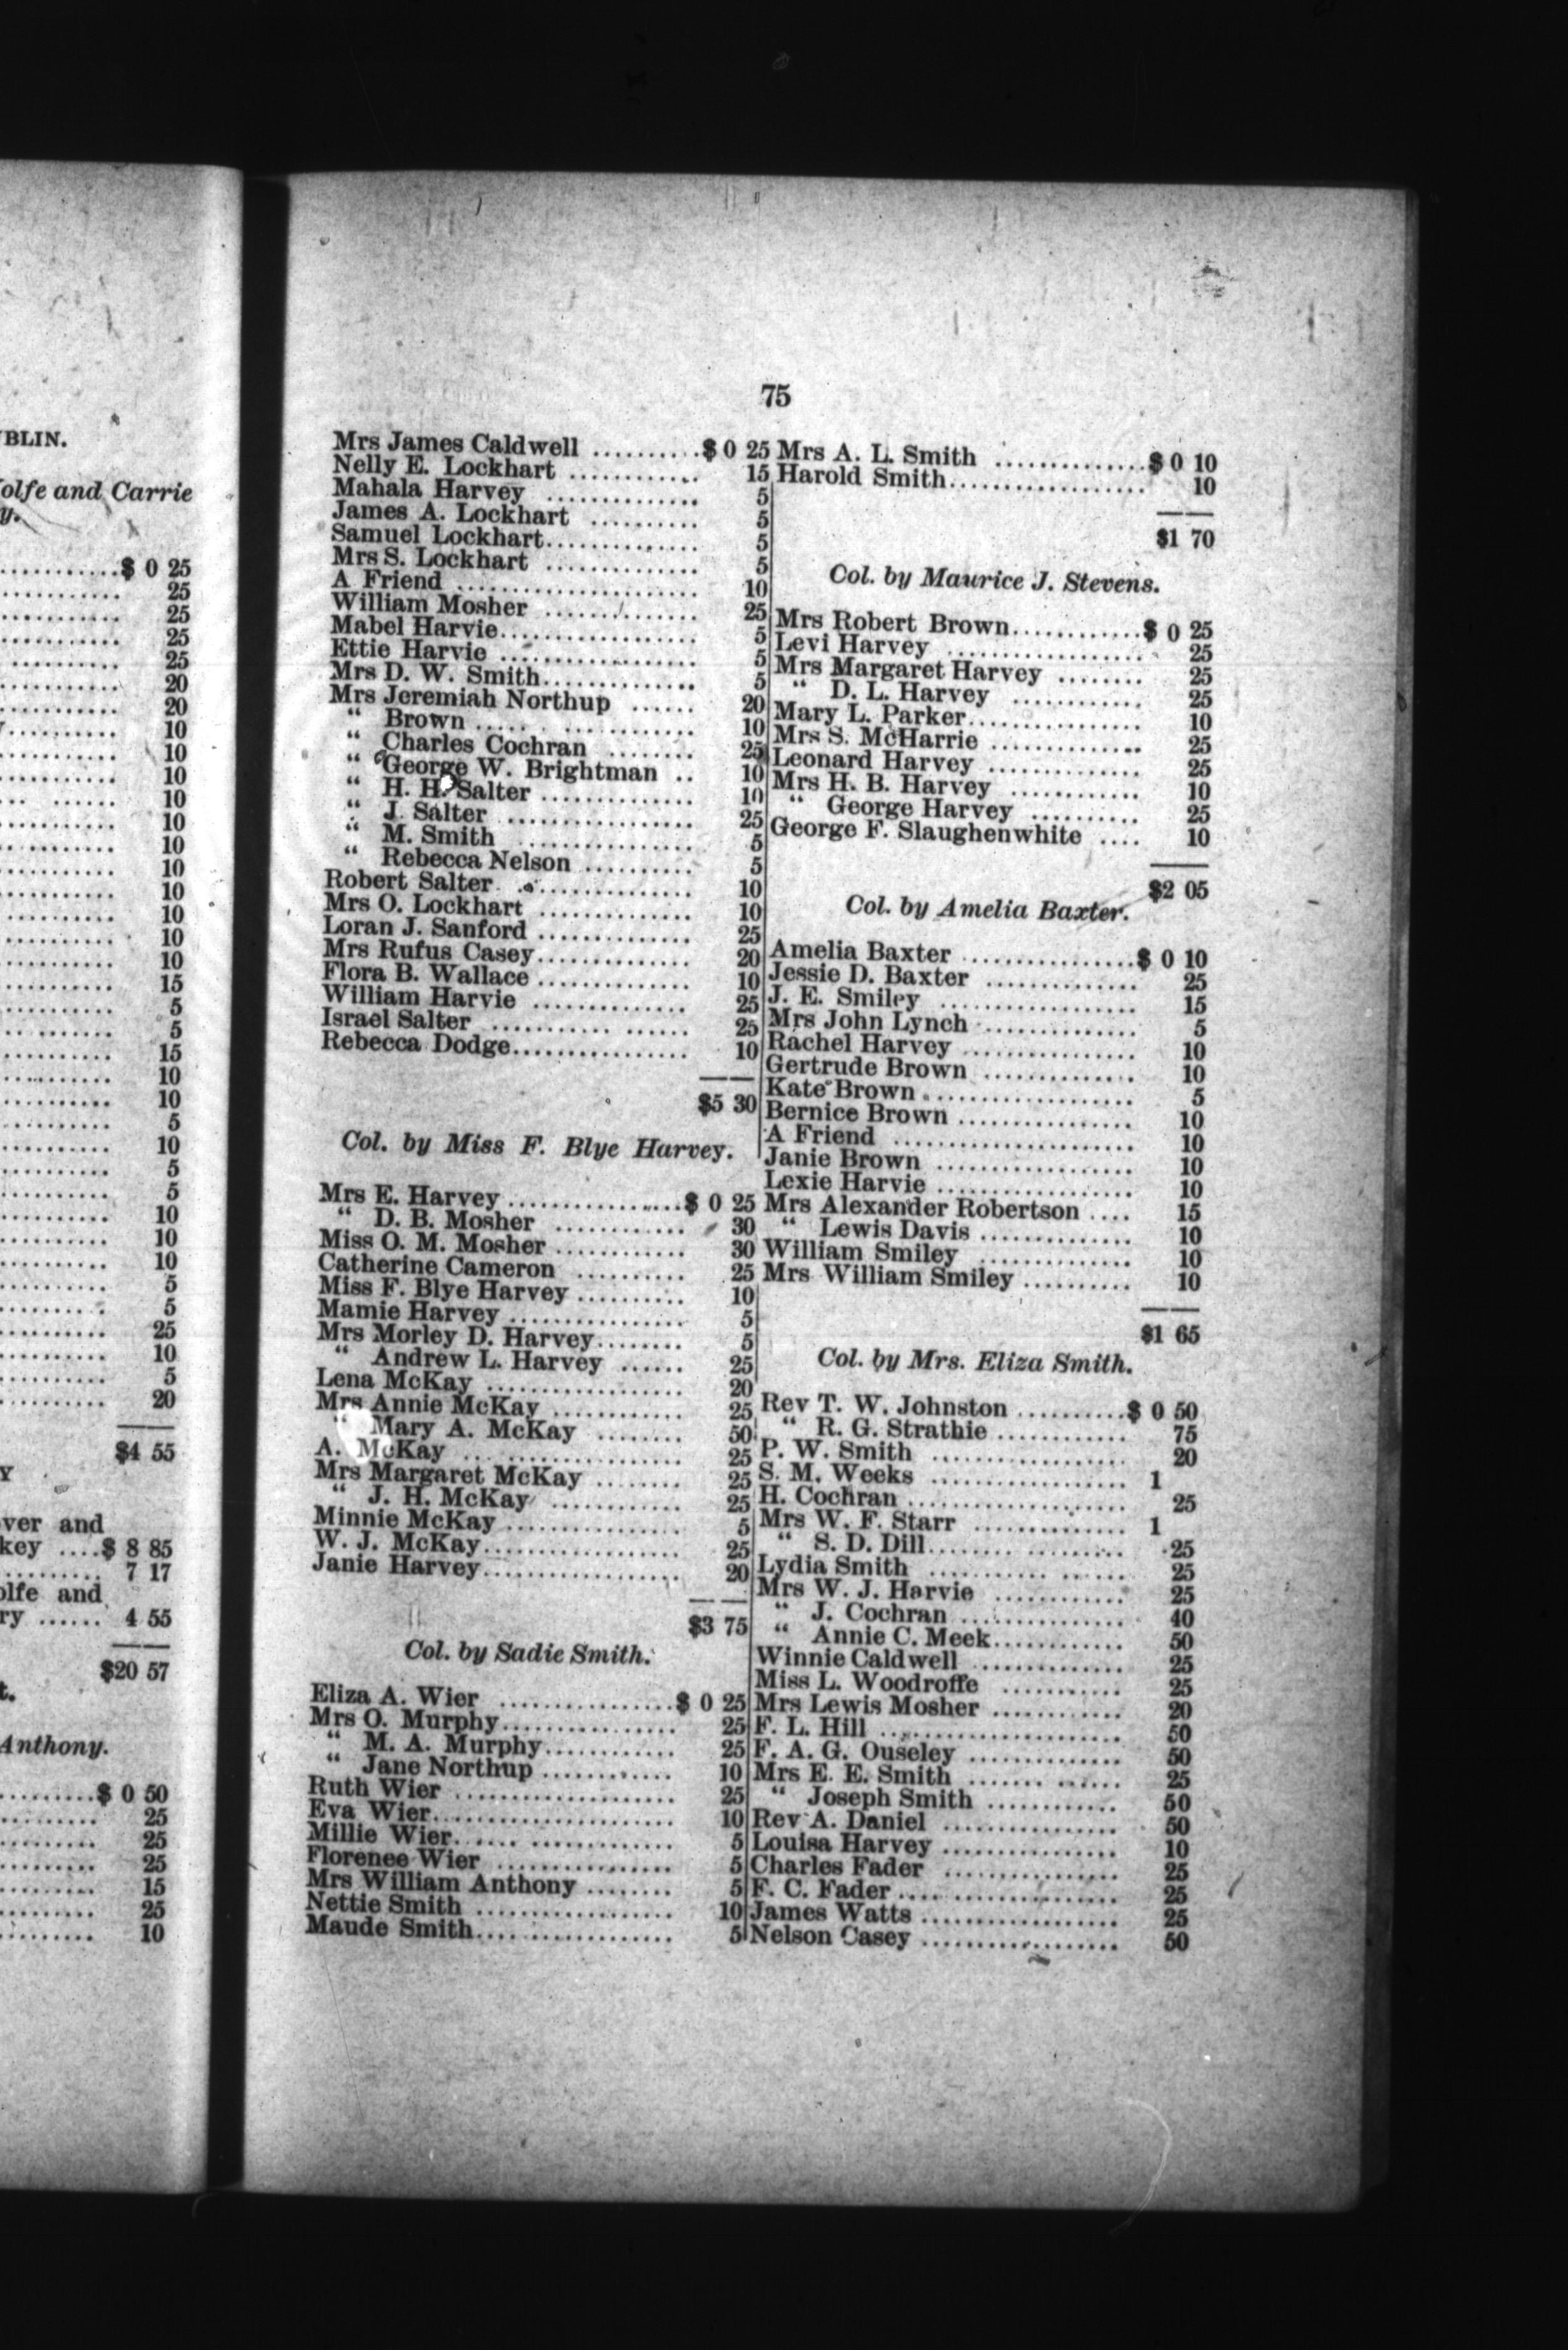 BLIN.
olfe and Carrie
y.
...........$ 0 25
25
25
25
25
20
20
10
10
10
10
10
10
10
10
10
10
10
15
5
5
15
10
10
5
10
5
5
10
10
10
5
5
25
10
5
20
$4 55
Y
ver and
key ....$ 8 85
7 17
olfe and
ry ...... 4 55
$20 57
t.
Anthony.
.........$ 0 50
25
25
25
15
25
10
75
Mrs James Caldwell ..........$ 0 25
Nelly E. Lockhart ............ 15
Mahala Harvey .............. 5
James A. Lockhart .......... 5
Samuel Lockhart.............. 5
Mrs S. Lockhart .............. 5
A Friend ...................... 10
William Mosher .............. 25
Mabel Harvie.................. 5
Ettie Harvie .................. 5
Mrs D. W. Smith.............. 5
Mrs Jeremiah Northup ...... 20
“ Brown ..... .............. 10
“ Charles Cochran ........ 25
“ George W. Brightman .. 10
“ H. H. Salter .............. 10
“ J. Salter .................. 25
“ M. Smith ................ 5
“ Rebecca Nelson .......... 5
Robert Salter ................ 10
Mrs O. Lockhart .............. 10
Loran J. Sanford .............. 25
Mrs Rufus Casey.............. 20
Flora B. Wallace .............. 10
William Harvie .............. 25
Israel Salter ........... ...... 25
Rebecca Dodge................ 10
$5 30
Col. by Miss F. Blye Harvey.
Mrs E. Harvey ................$ 0 25
“ D. B. Mosher ............ 30
Miss O. M. Mosher ............ 30
Catherine Cameron .......... 25
Miss F. Blye Harvey .......... 10
Mamie Harvey ................ 5
Mrs Morley D. Harvey........ 5
“ Andrew L. Harvey ...... 25
Lena McKay .................. 20
Mrs Annie McKay ............ 25
“ Mary A. McKay ........ 50
A. McKay .................... 25
Mrs Margaret McKay ........ 25
“ J. H. McKay ............ 25
Minnie McKay ................ 5
W. J. McKay.................. 25
Janie Harvey.................. 20
$3 75
Col. by Sadie Smith.
Eliza A. Wier ................$ 0 25
Mrs O. Murphy................ 25
“ M. A. Murphy............ 25
“ Jane Northup ............ 10
Ruth Wier .................... 25
Eva Wier...................... 10
Millie Wier...... ............. 5
Florenee Wier ................ 5
Mrs William Anthony ........ 5
Nettie Smith .................. 10
Maude Smith.................. 5
Mrs A. L. Smith ..............$ 0 10
Harold Smith.................. 10
$1 70
Col. by Maurice J. Stevens.
Mrs Robert Brown............$ 0 25
Levi Harvey .................. 25
Mrs Margaret Harvey ........ 25
“ D. L. Harvey ............ 25
Mary L. Parker................ 10
Mrs S. McHarrie .............. 25
Leonard Harvey .............. 25
Mrs H. B. Harvey ............ 10
“ George Harvey .......... 25
George F. Slaughenwhite .... 10
$2 05
Col. by Amelia Baxter.
Amelia Baxter ................$ 0 10
Jessie D. Baxter .............. 25
J. E. Smiley .................. 15
Mrs John Lynch .............. 5
Rachel Harvey ................ 10
Gertrude Brown .............. 10
Kate Brown ................... 5
Bernice Brown ................ 10
A Friend ...................... 10
Janie Brown .................. 10
Lexie Harvie .................. 10
Mrs Alexander Robertson .... 15
“ Lewis Davis .............. 10
William Smiley .............. 10
Mrs William Smiley .......... 10
$1 65
Col. by Mrs. Eliza Smith.
Rev T. W. Johnston ..........$ 0 50
“ R. G. Strathie ............ 75
P. W. Smith .................. 20
S. M. Weeks .................. 1
H. Cochran .................... 25
Mrs W. F. Starr .............. 1
“ S. D. Dill........ .......... 25
Lydia Smith ............ ...... 25
Mrs W. J. Harvie ............ 25
“ J. Cochran ................ 40
“ Annie C. Meek............ 50
Winnie Caldwell .............. 25
Miss L. Woodroffe ........... 25
Mrs Lewis Mosher ............ 20
F. L. Hill ...................... 50
F. A. G. Ouseley .............. 50
Mrs E. E. Smith ....... ...... 25
“ Joseph Smith ............ 50
Rev A. Daniel ................ 50
Louisa Harvey ................ 10
Charles Fader ................ 25
F. C. Fader .................... 25
James Watts .................. 25
Nelson Casey .................. 50